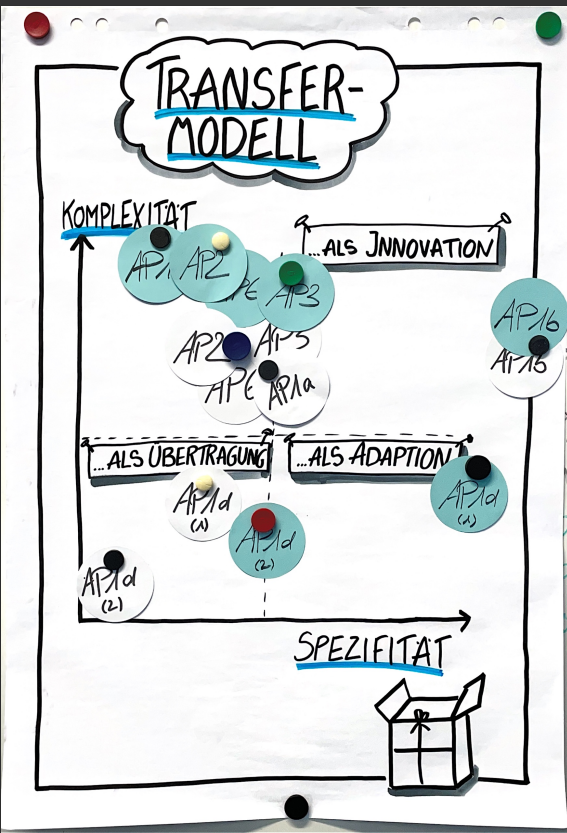 TRANSFER-
MODELL
KOMPLEXITÄT
...ALS INNOVATION
AP1
AP2
AP3
AP1b
AP2
AP1a
...ALS ÜBERTRAGUNG
...ALS ADAPTION
AP1d
(1)
AP1d
(1)
AP1d
(2)
AP1d
(2)
SPEZIFITÄT